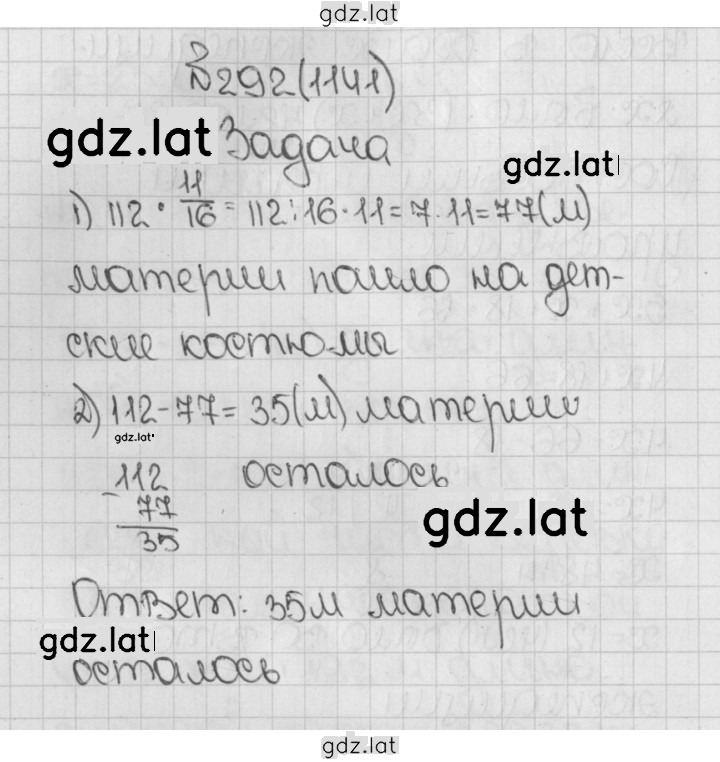 gdz.lat
№292(1141)
gdz.lat Задача
gdz.lat
1) 112 · 11/16 = 112:16·11=7·11=77(м)
материи пошло на дет-
ские костюмы
2) 112-77=35(м) материи
gdz.lat
112 осталось
- 77
gdz.lat
35
Ответ: 35м материи
gdz.lat
осталось
gdz.lat